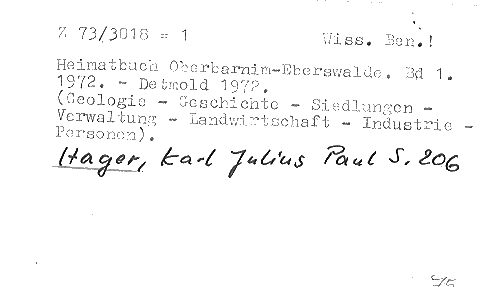 Z 73/3018 = 1 Wiss. Ben.!
Heimatbuch Oberbarnim-Eberswalde. Bd 1.
1972. - Detmold 1972.
(Geologie - Geschichte - Siedlungen -
Verwaltung - Landwirtschaft - Industrie -
Personen).
Hager, Karl Julius Paul S. 206